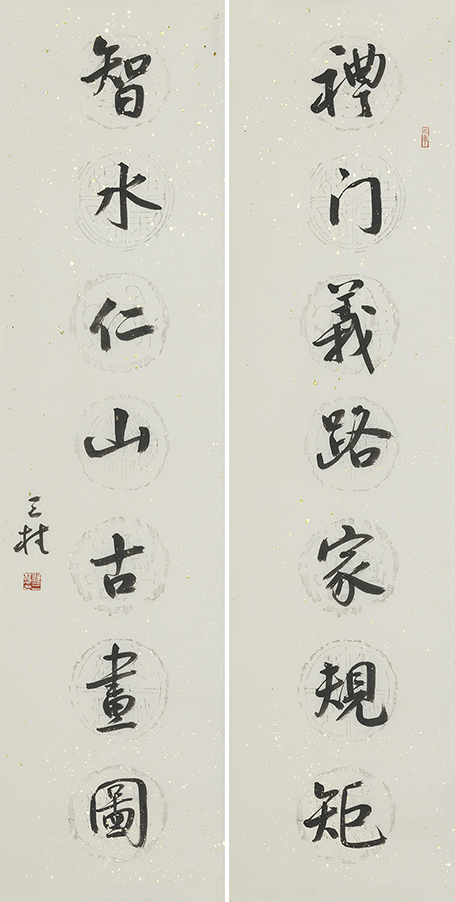 禮门義路家規矩
智水仁山古畫圖